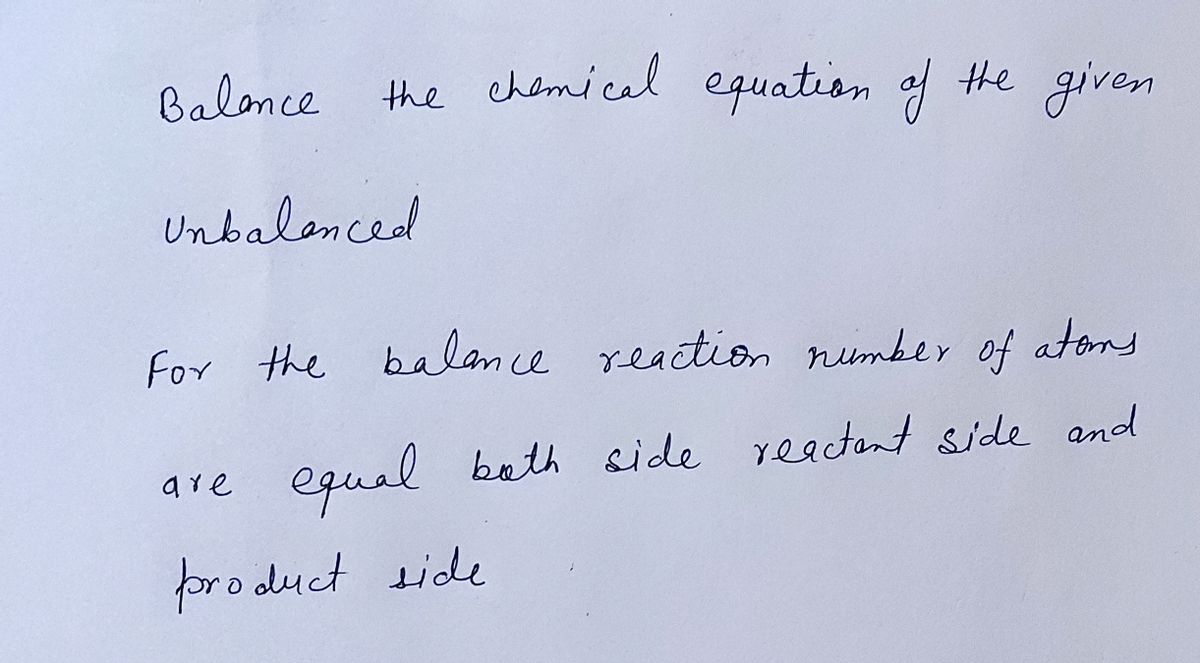 Balance the chemical equation of the given
Unbalanced
For the balance reaction number of atoms
are equal both side reactant side and
product side